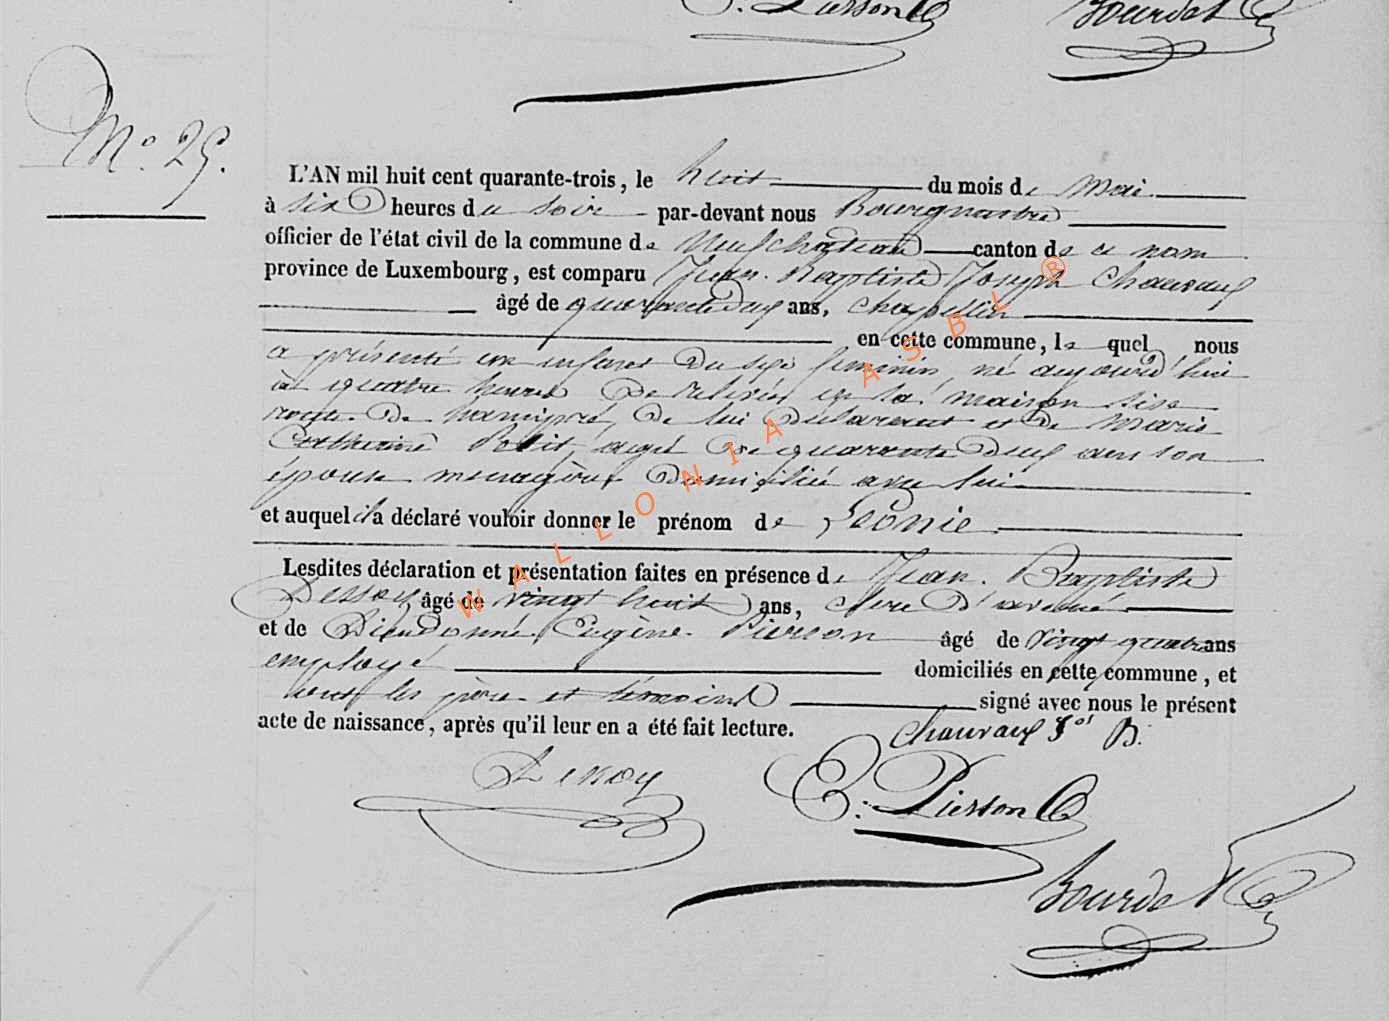 E. Pierson
Bourdet
N° 25.
L'AN mil huit cent quarante-trois, le huit du mois de Mai
à six heures du soir par-devant nous Bourgmestre
officier de l'état civil de la commune de Neufchateau canton de ce nom
province de Luxembourg, est comparu Jean. Baptiste Joseph Chauvaux
âgé de quarante deux ans, chapellier
en cette commune, lequel nous
a présenté un enfant du sexe feminin né aujourd'hui
à quatre heures de relevée en sa maison sise
route de Namipré, de lui déclarant et de Marie
Catherine Petit, agée de quarante deux ans son
épouse menagère domiciliée avec lui
et auquel il a déclaré vouloir donner le prénom de Léonie
Lesdites déclaration et présentation faites en présence de Jean. Baptiste
âgé de vingt huit ans, clerc d'avoué
et de Dieudonné Eugène Pierson âgé de vingt quatre ans
employé domiciliés en cette commune, et
ont les père et témoins signé avec nous le présent
acte de naissance, après qu'il leur en a été fait lecture.
Chauvaux Jos B.
E. Pierson
Bourdet
WALLONIA ASBL ®